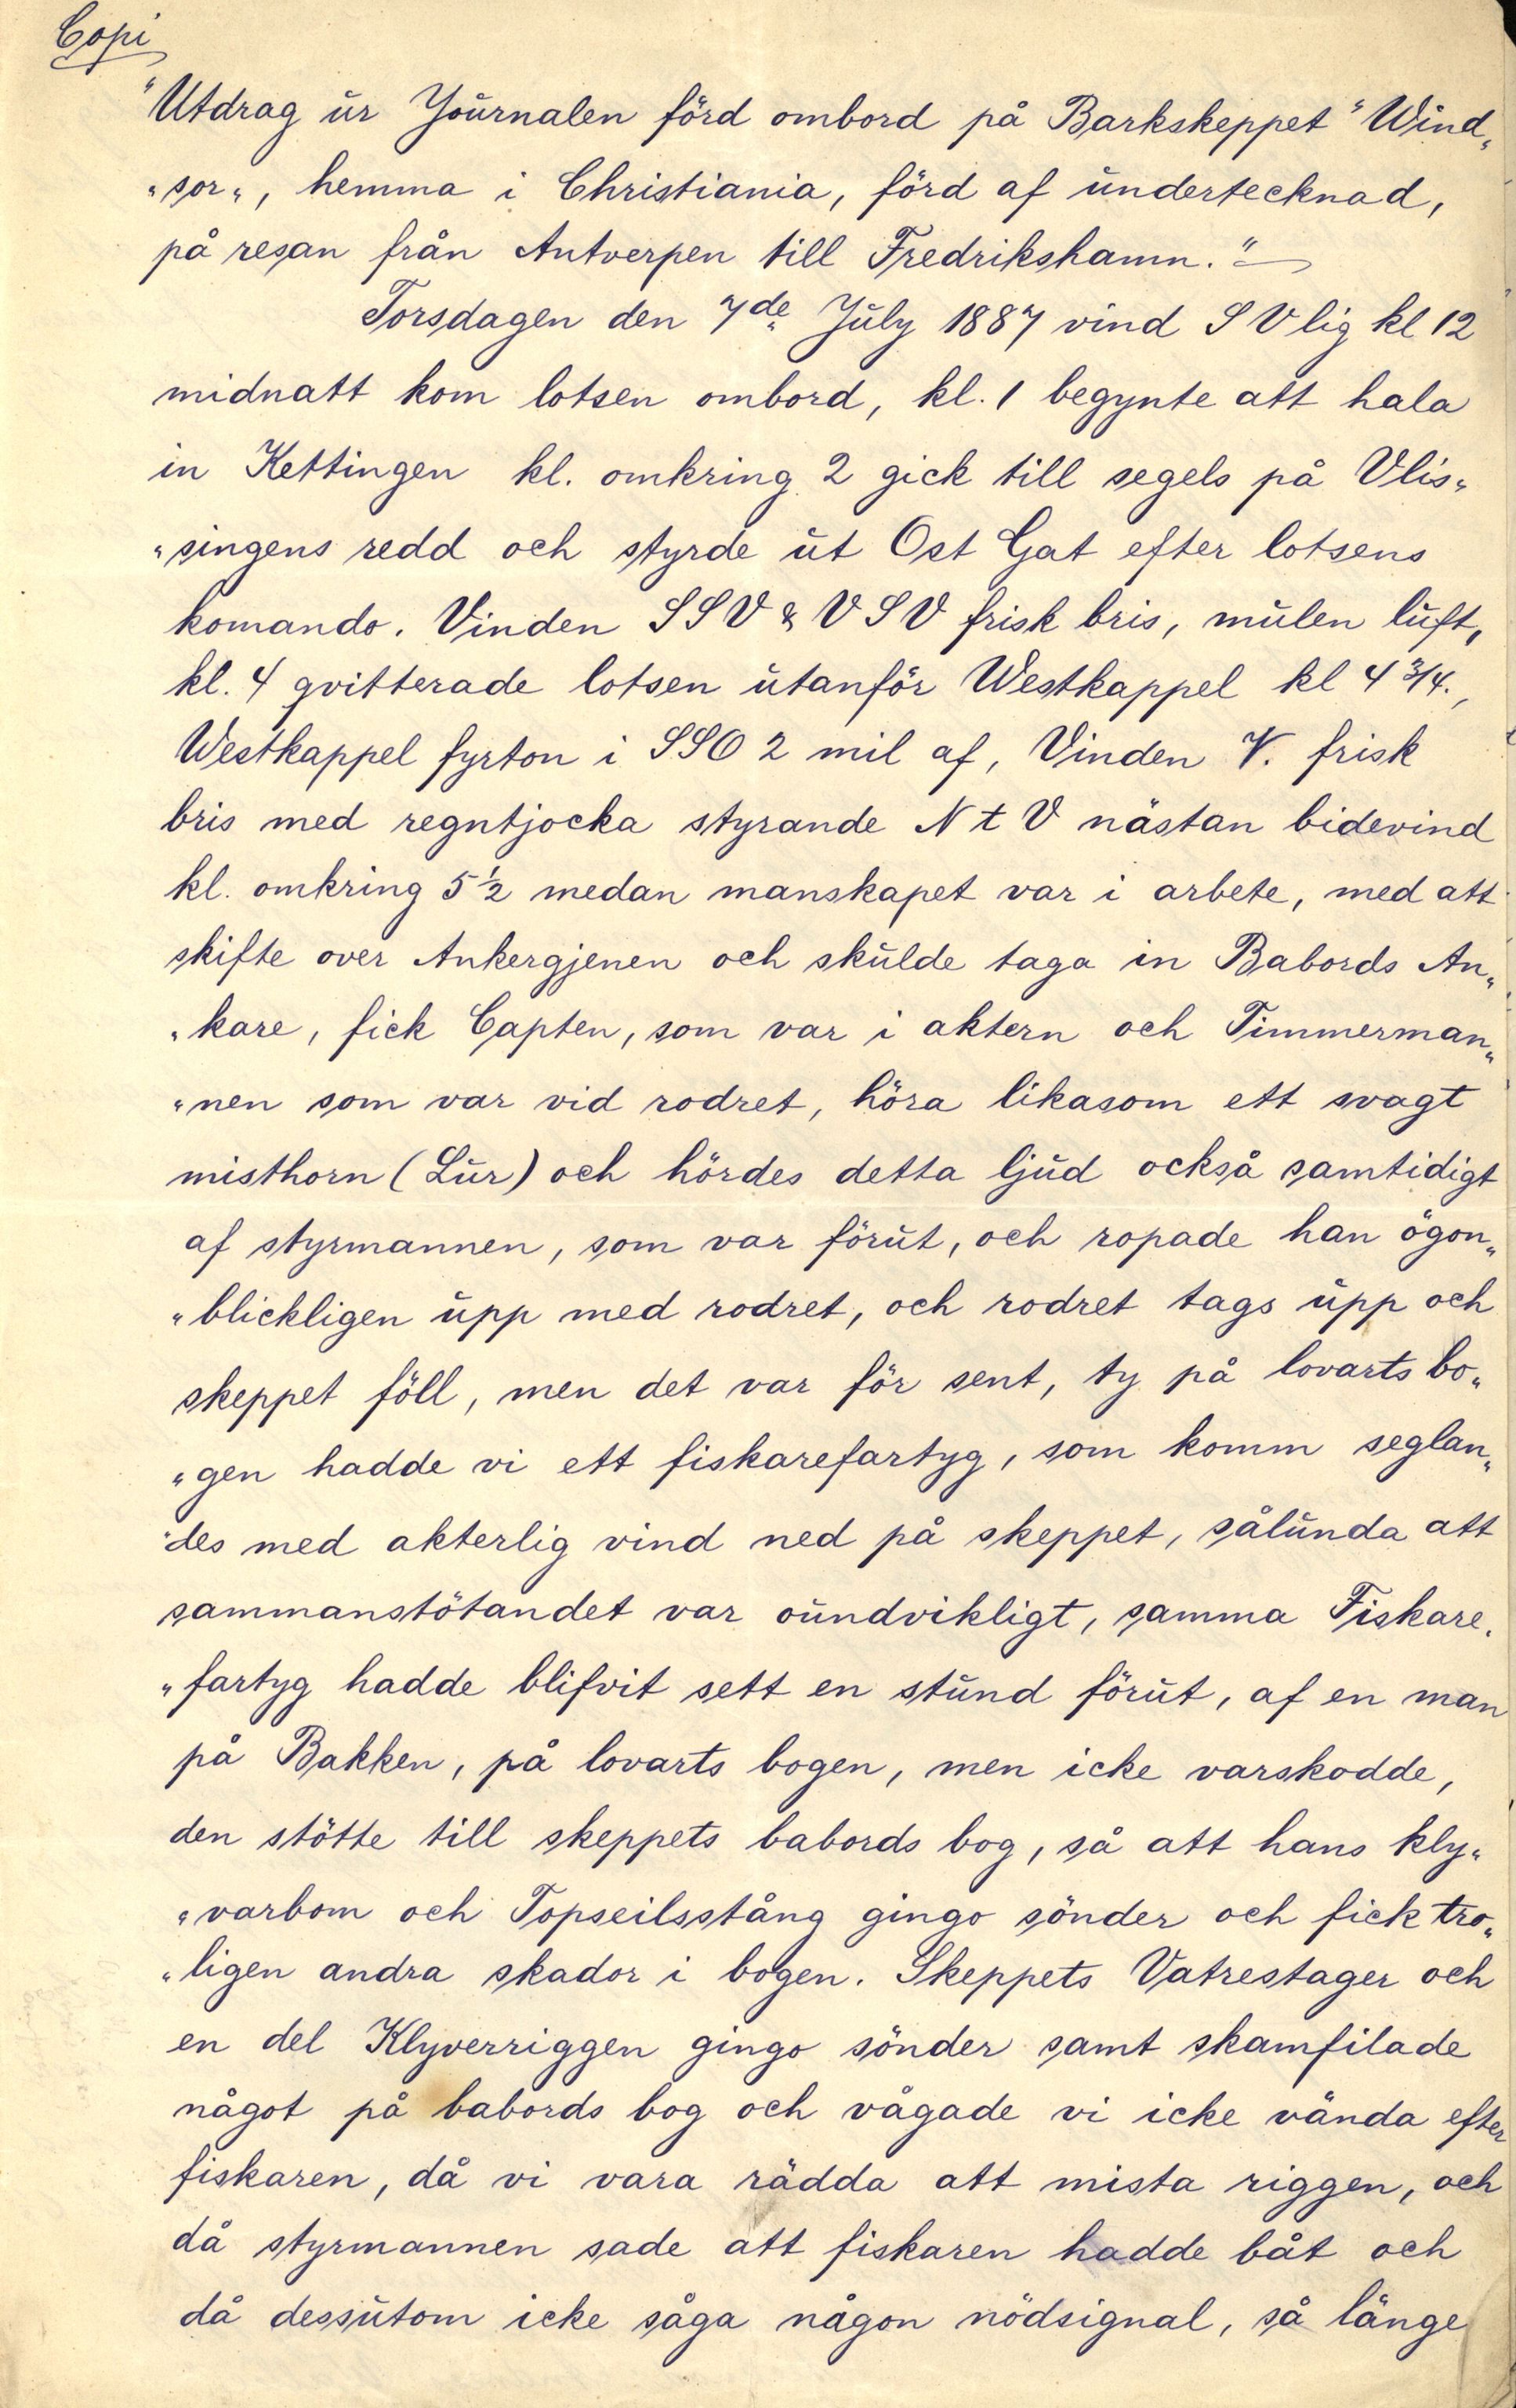 Copi
"Utdrag ur Journalen förd ombord på Barkskeppet "Wind„
„sor„, hemma i Christiania, förd af undertecknad,
på resan från Antverpen till Fredrikshamn."
Torsdagen den 7de July 1887 vind S V lig kl 12
midnatt kom lotsen ombord, kl. 1 begynte att hala
in Kettingen kl. omkring 2 gick till segels på Vlis„
„singens redd och styrde ut Ost Gat efter lotsens
komando. Vinden S S V & V S V frisk bris, mulen luft,
kl. 4 qvitterade lotsen utanför Westkappel kl 4 3/4.,
Westkappel fyrton i S S O 2 mil af, Vinden V. frisk
bris med regntjocka styrande N t V nästan bidevind
kl. omkring 5 1/2 medan manskapet var i arbete, med att
skifte over Ankergjenen och skulde taga in Babords An„
„kare, fick Capten, som var i aktern och Timmerman„
„nen som var vid rodret, höra likasom ett svagt
misthorn (Lur) och hördes detta ljud också samtidigt
af styrmannen, som var förut, och ropade han ögon„
„blickligen upp med rodret, och rodret tags upp och
skeppet föll, men det var för sent, ty på lovarts bo„
„gen hadde vi ett fiskarefartyg, som komm seglan„
„des med akterlig vind ned på skeppet, sålunda att
sammanstötandet var oundvikligt, samma Fiskare„
„fartyg hadde blifvit sett en stund förut, af en man
på Bakken, på lovarts bogen, men icke varskodde,
den stötte till skeppets babords bog, så att hans kly„
„varbom och Topseilsstång gingo sönder och fick tro„
„ligen andra skador i bogen. Skeppets Vatrestager och
en del Klyverriggen gingo sönder samt skamfilade
något på babords bog och vågade vi icke vända efter
fiskaren, då vi vara rädda att mista riggen, och
då styrmannen sade att fiskaren hadde båt och
då dessutom icke såga någon nödsignal, så länge